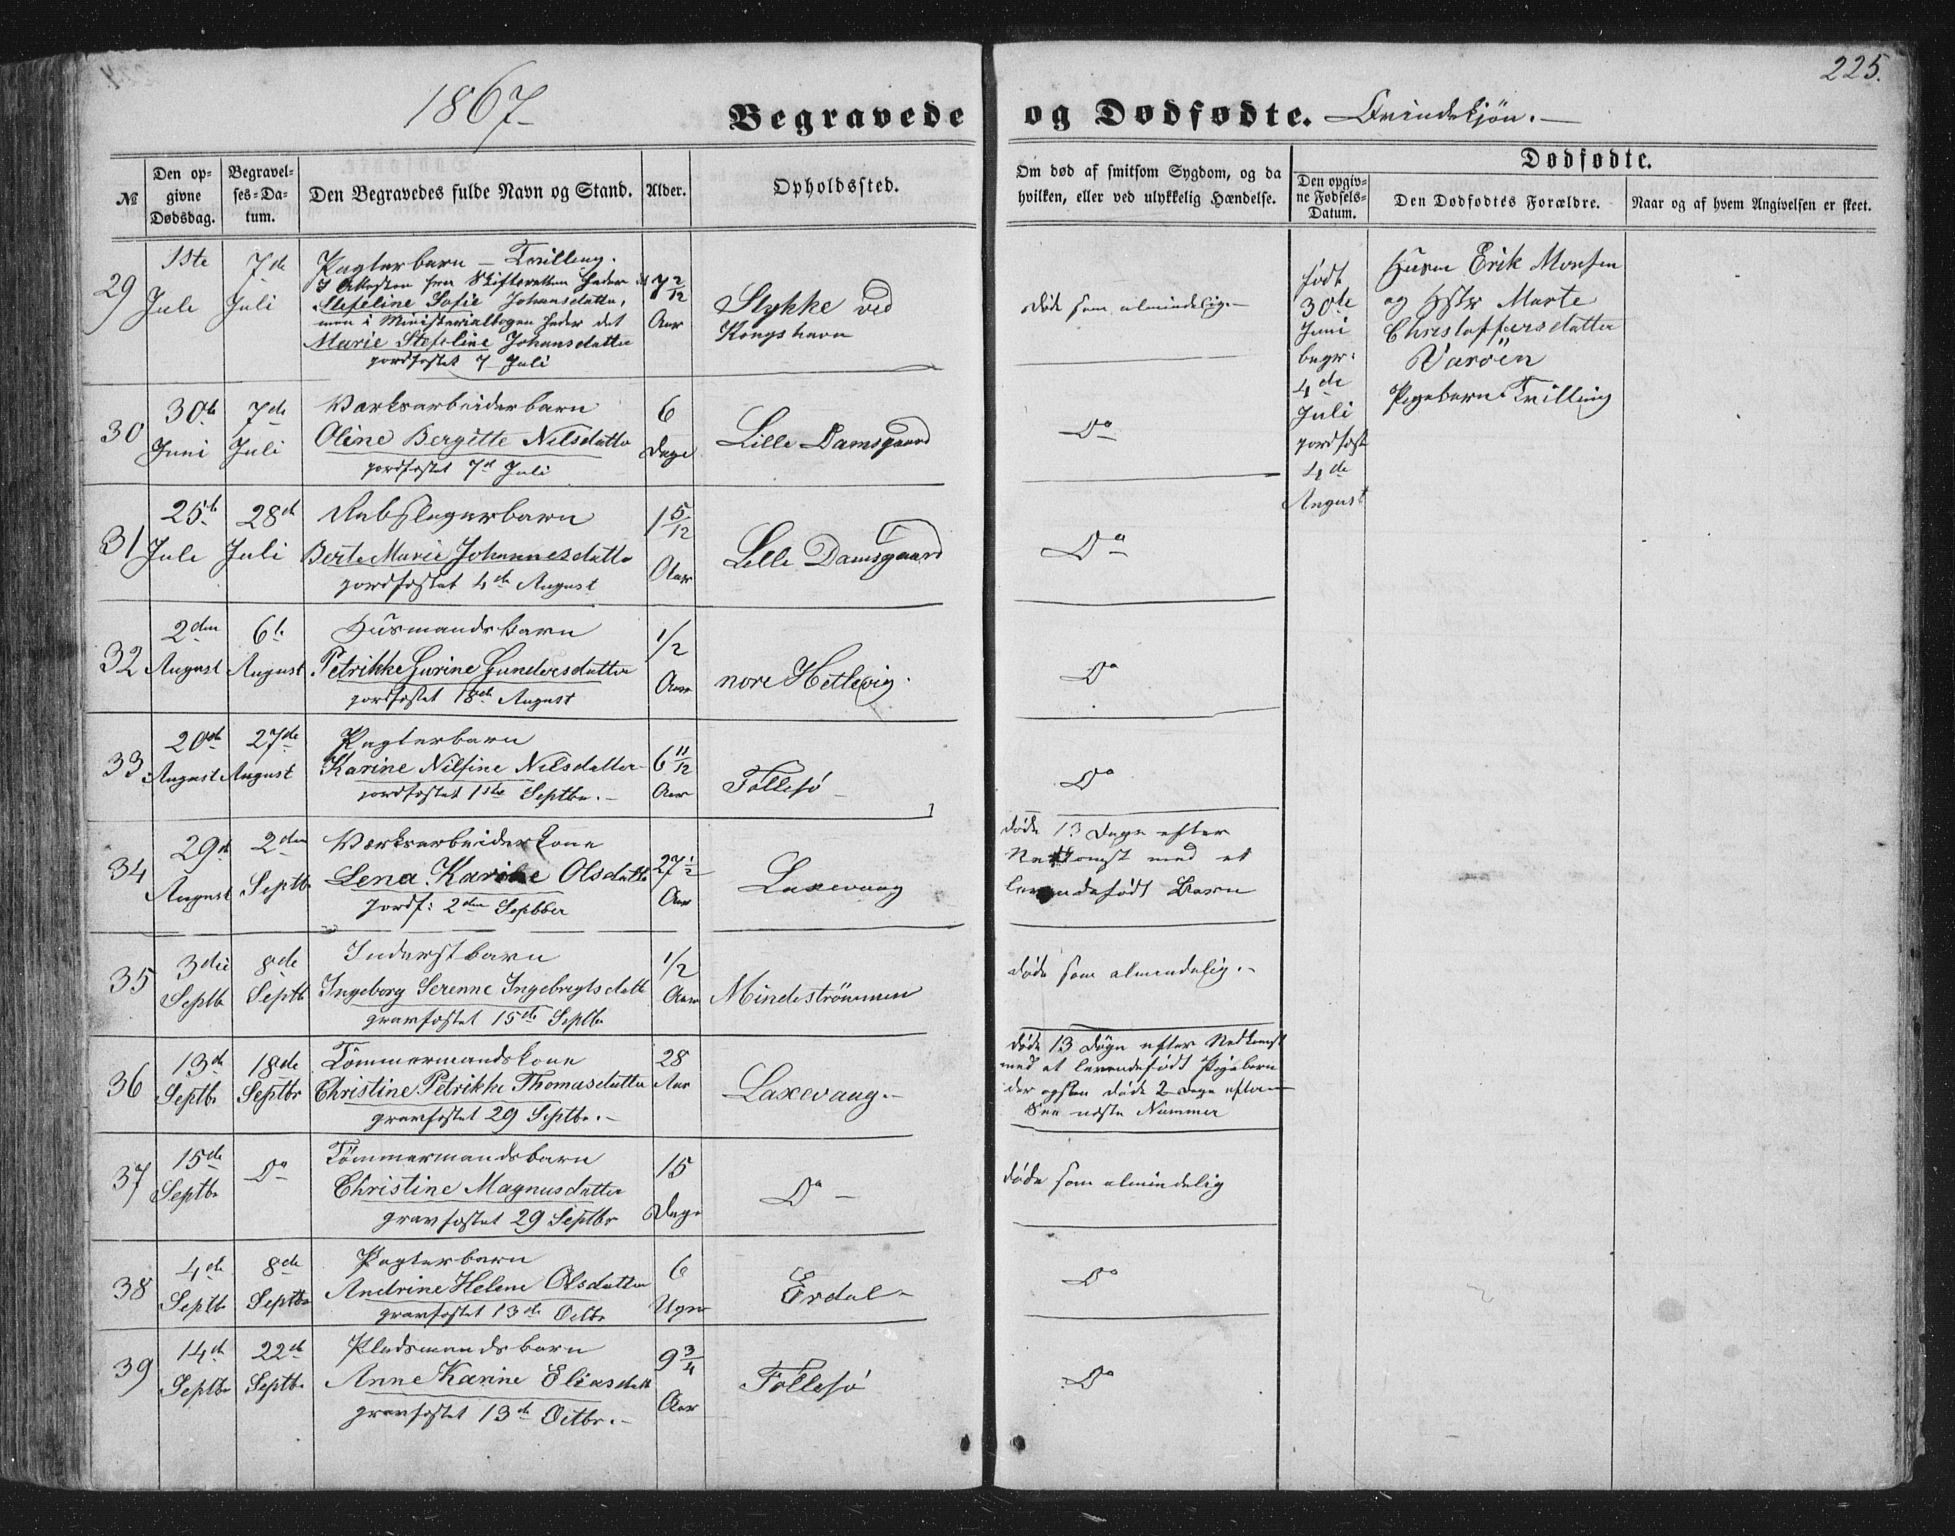 1867
225.
Begravede og Dødfødte. Qvindekjön.
№
Den opgivne Dødsdag.
Begravelses-Datum.
Den Begravedes fulde Navn og Stand.
Alder.
Opholdssted.
Om død af smitsom Sygdom, og da hvilken, eller ved ulykkelig Hændelse.
Dødfødte.
Den opgivne Fødsels-Datum.
Den Dødfødtes Forældre.
Naar og af hvem Angivelsen er skeet.
29
1ste Juli
7de Juli
Pagterbarn – Tvilling.
I Attesten fra Skifteretten heder
Stefeline Sofie Johansdatter,
men i Ministerialbogen heder det
Marie Stefeline Johansdatter
jordfæstet 7 Juli
7 2/12 Aar
Stykke ved
Kongshavn
Døde som almindelig.
født
30te
Juni
begr:
4de
Juli
jordfæst
4de
August
Husm Erik Monsen
og Hstr Marte
Christoffersdatter
Varöen
Pigebarn Tvilling
30
30te Juni
7de Juli
Værksarbeiderbarn
Oline Bergitte Nilsdatter
jordfæstet 7de Juli
6 Dage
Lille Damsgaard
Do
31
25de Juli
28de Juli
Rebslagerbarn
Berte Marie Johannesdatter
jordfæstet 4de August
1 5/12 Aar
Lille Damsgaard
Do
32
2den August
6te August
Husmandsbarn
Petrikke Gurine Gundersdatter
jordfæstet 18de August
1/2 Aar
nore Hetlevig.
Do
33
20de August
27de August
Pagterbarn
Karine Nilsine Nilsdatter
jordfæstet 1ste Septbr.
6 11/12 Aar
Follesø
Do
34
29de August
2den Septbr
Værksarbeiderkone
Lena Karine Olsdatter
Jordf: 2den Septbber
27 1/2 Aar
Laxevaag
døde 13 Dage efter
Nedkomst med et
levendefødt Barn
35
3die Septbr
8de Septb
Inderstbarn
Ingeborg Serenne Ingebregtsdatt
gravfæstet 15de Septbr
1/2 Aar
Mindeströmmen
døde som almindelig.
36
13de Septbr
18de Septbr
Tömmermandskone
Christine Petrikke Thomasdatter
gravfæstet 29 Septbr.
28 Aar
Laxevaag.
døde 13 Døgn efter Nedkomst
med et levendefødt Pigebarn
der ogsaa døde 2 Dage efter
See næste Nummer
37
15de Septbr
Do
Tømmermandsbarn
Christine Magnusdatter
gravfæstet 29 Septbr
15 Dage
Do
døde som almindelig
38
4de Septbr
8de Septbr
Pagterbarn
Andrine Helene Olsdatter
gravfæstet 13de Octbr
6 Uger
Erdal
Do
39
14de Septbr
22de Septbr
Pladsmandsbarn
Anne Karine Eliasdatt
gravfæstet 13de Octbr.
9 3/4 Aar
Follesø
Do